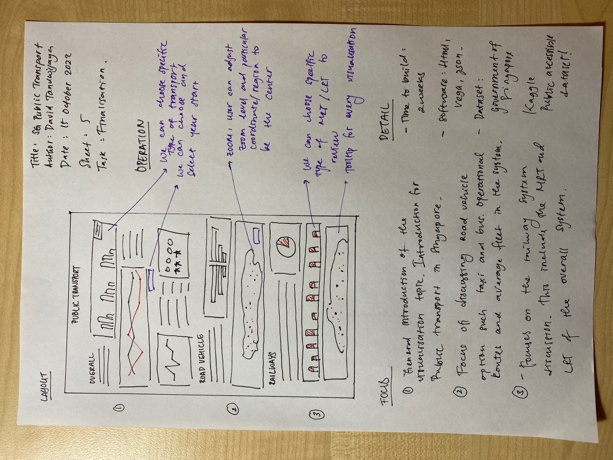 Title: SG Public Transport
Author: David
Date: 15 October 2022
Sheet: 5
Task: Finalisation.
LAYOUT
PUBLIC TRANSPORT
① OVERALL
② ROAD VEHICLE
③ RAILWAYS
OPERATION
We can choose specific
type of transport
We can choose and
select year start
Zoom: user can adjust
zoom level and particular
coordinate/region to
be the center
We can choose specific
type of MRT/LRT to
review
Tooltip for every visualisation
FOCUS
① General introduction of the
visualisation topic. Introduction for
Public transport in Singapore.
② Focus of discussing Road vehicle
option such taxi and bus. Operational
routes and average fleet in the system.
③ - Focuses on the railway system
discussion. This include the MRT and
LRT of the overall system.
DETAIL
- Time to build:
2 weeks
- Software: Html,
Vega, Json.
- Dataset:
Government of
Singapore
Kaggle
Public accessible
dataset!